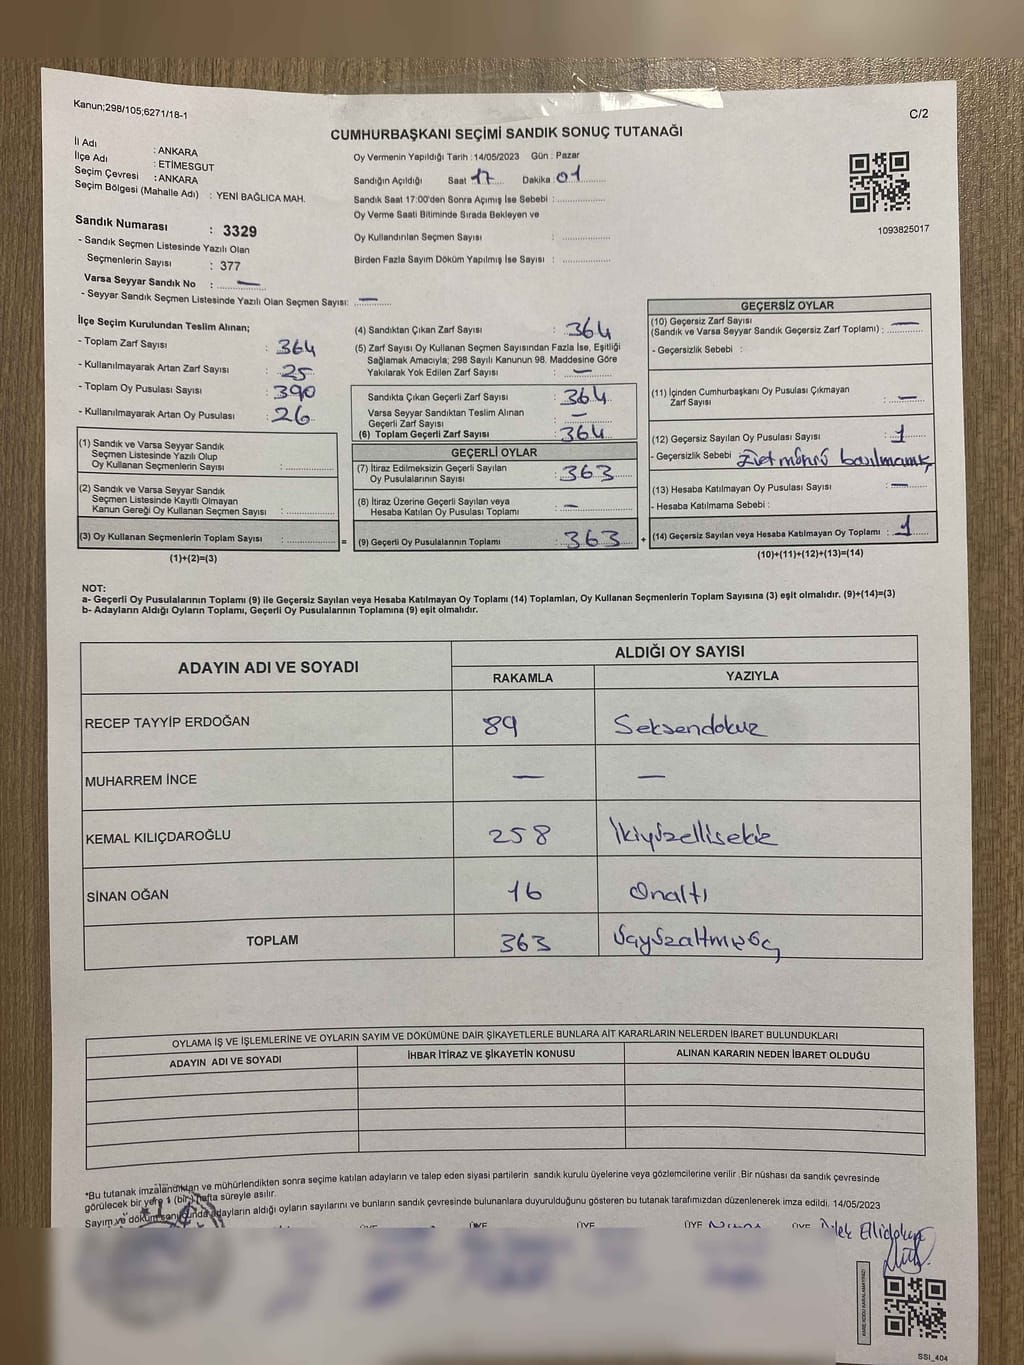 Kanun;298/105;6271/18-1
C/2
CUMHURBAŞKANI SEÇİMİ SANDIK SONUÇ TUTANAĞI
İl Adı : ANKARA
İlçe Adı : ETİMESGUT
Seçim Çevresi : ANKARA
Seçim Bölgesi (Mahalle Adı) : YENİ BAĞLICA MAH.
Sandık Numarası : 3329
- Sandık Seçmen Listesinde Yazılı Olan
Seçmenlerin Sayısı : 377
Varsa Seyyar Sandık No : —
- Seyyar Sandık Seçmen Listesinde Yazılı Olan Seçmen Sayısı: —
Oy Vermenin Yapıldığı Tarih :14/05/2023 Gün : Pazar
Sandığın Açıldığı Saat 17 Dakika 01
Sandık Saat 17:00'den Sonra Açımış İse Sebebi :
Oy Verme Saati Bitiminde Sırada Bekleyen ve
Oy Kullandırılan Seçmen Sayısı :
Birden Fazla Sayım Döküm Yapılmış İse Sayısı :
1093825017
İlçe Seçim Kurulundan Teslim Alınan;
- Toplam Zarf Sayısı : 364
- Kullanılmayarak Artan Zarf Sayısı : 25
- Toplam Oy Pusulası Sayısı : 390
- Kullanılmayarak Artan Oy Pusulası : 26
(1) Sandık ve Varsa Seyyar Sandık
Seçmen Listesinde Yazılı Olup
Oy Kullanan Seçmenlerin Sayısı :
(2) Sandık ve Varsa Seyyar Sandık
Seçmen Listesinde Kayıtlı Olmayan
Kanun Gereği Oy Kullanan Seçmen Sayısı :
(3) Oy Kullanan Seçmenlerin Toplam Sayısı : =
(1)+(2)=(3)
(4) Sandıktan Çıkan Zarf Sayısı : 364
(5) Zarf Sayısı Oy Kullanan Seçmen Sayısından Fazla İse, Eşitliği
Sağlamak Amacıyla; 298 Sayılı Kanunun 98. Maddesine Göre
Yakılarak Yok Edilen Zarf Sayısı : —
Sandıkta Çıkan Geçerli Zarf Sayısı : 364
Varsa Seyyar Sandıktan Teslim Alınan
Geçerli Zarf Sayısı : —
(6) Toplam Geçerli Zarf Sayısı : 364
GEÇERLİ OYLAR
(7) İtiraz Edilmeksizin Geçerli Sayılan
Oy Pusulalarının Sayısı : 363
(8) İtiraz Üzerine Geçerli Sayılan veya
Hesaba Katılan Oy Pusulası Toplamı : —
(9) Geçerli Oy Pusulalarının Toplamı : 363 +
GEÇERSİZ OYLAR
(10) Geçersiz Zarf Sayısı
(Sandık ve Varsa Seyyar Sandık Geçersiz Zarf Toplamı) : —
- Geçersizlik Sebebi :
(11) İçinden Cumhurbaşkanı Oy Pusulası Çıkmayan
Zarf Sayısı : —
(12) Geçersiz Sayılan Oy Pusulası Sayısı : 1
- Geçersizlik Sebebi
(13) Hesaba Katılmayan Oy Pusulası Sayısı : —
- Hesaba Katılmama Sebebi :
(14) Geçersiz Sayılan veya Hesaba Katılmayan Oy Toplamı : 1
(10)+(11)+(12)+(13)=(14)
NOT:
a- Geçerli Oy Pusulalarının Toplamı (9) ile Geçersiz Sayılan veya Hesaba Katılmayan Oy Toplamı (14) Toplamları, Oy Kullanan Seçmenlerin Toplam Sayısına (3) eşit olmalıdır. (9)+(14)=(3)
b- Adayların Aldığı Oyların Toplamı, Geçerli Oy Pusulalarının Toplamına (9) eşit olmalıdır.
ADAYIN ADI VE SOYADI
ALDIĞI OY SAYISI
RAKAMLA YAZIYLA
RECEP TAYYİP ERDOĞAN 89 Seksendokuz
MUHARREM İNCE — —
KEMAL KILIÇDAROĞLU 258 İkiyüzellisekiz
SİNAN OĞAN 16 Onaltı
TOPLAM 363 Üçyüzaltmışüç
OYLAMA İŞ VE İŞLEMLERİNE VE OYLARIN SAYIM VE DÖKÜMÜNE DAİR ŞİKAYETLERLE BUNLARA AİT KARARLARIN NELERDEN İBARET BULUNDUKLARI
ADAYIN ADI VE SOYADI İHBAR İTİRAZ VE ŞİKAYETİN KONUSU ALINAN KARARIN NEDEN İBARET OLDUĞU
*Bu tutanak imzalandıktan ve mühürlendikten sonra seçime katılan adayların ve talep eden siyasi partilerin sandık kurulu üyelerine veya gözlemcilerine verilir .Bir nüshası da sandık çevresinde
görülecek bir yere 1 (bir) hafta süreyle asılır.
Sayım ve döküm sonucunda adayların aldığı oyların sayılarını ve bunların sandık çevresinde bulunanlara duyurulduğunu gösteren bu tutanak tarafımızdan düzenlenerek imza edildi. 14/05/2023
ÜYE ÜYE ÜYE ÜYE ÜYE
SSI_404